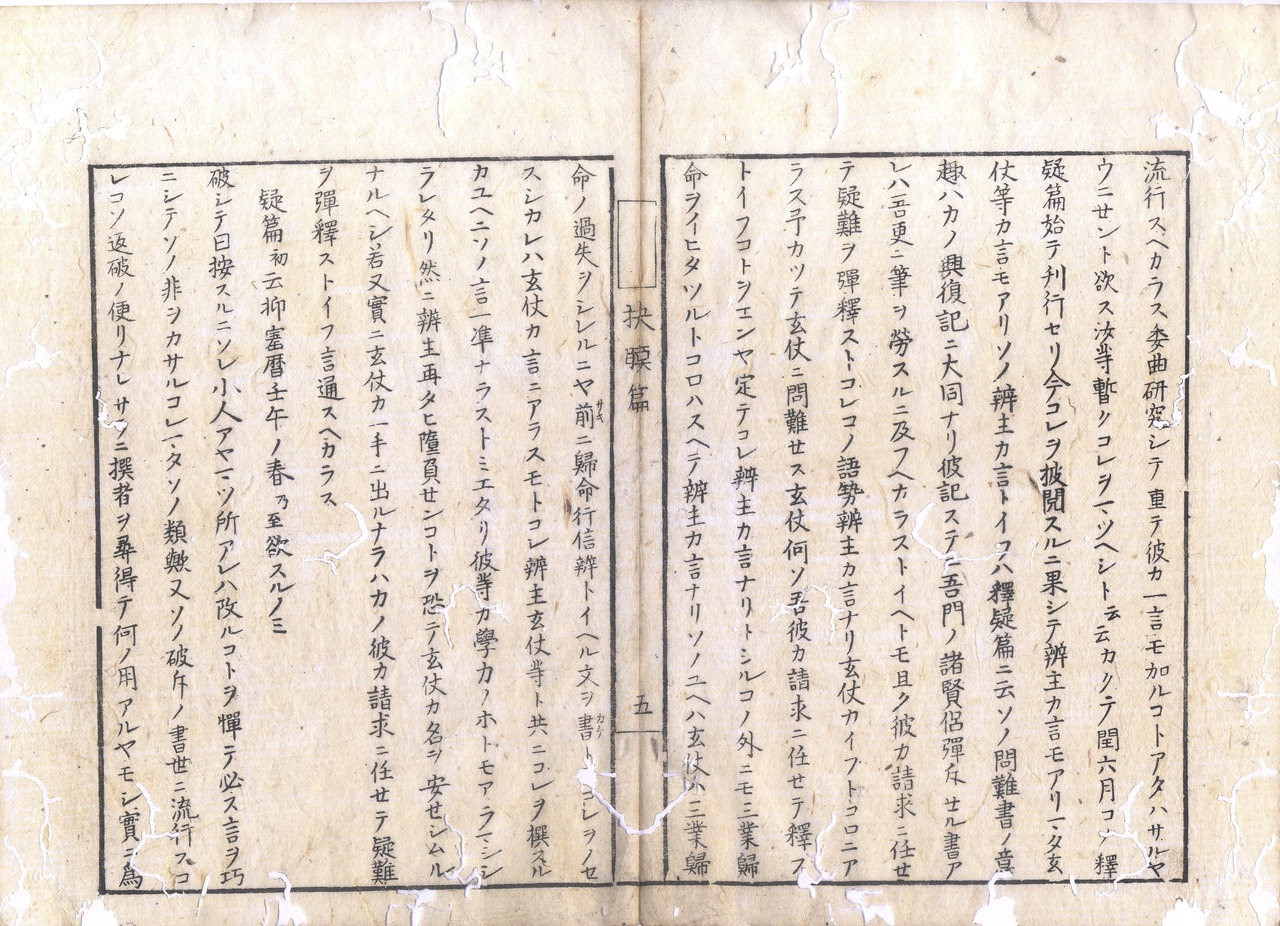 流行スヘカラス委曲研究シテ重テ彼カ一言モ加ルコトアタハサルヤ
ウニセント欲ス汝等暫クコレヲマツヘシト云云カクテ閏六月コノ釋
疑篇始テ刊行セリ今コレヲ披閲スルニ果シテ辨主カ言モアリマタ玄
仗等カ言モアリソノ辨主カ言トイフハ釋疑篇ニ云ソノ問難書ノ意
趣ハカノ興復記ニ大同ナリ彼記ステニ吾門ノ諸賢侶彈斥セル書ア
レハ吾更ニ筆ヲ勞スルニ及フヘカラストイヘトモ且ク彼カ請求ニ任せ
テ疑難ヲ彈釋ストコレコノ語勢辨主カ言ナリ玄仗カイフトコロニア
ラス予カツテ玄仗ニ問難せス玄仗何ソ吾彼カ請求ニ任せテ釋ス
トイフコトヲエンヤ定テコレ辨主カ言ナリトシルコノ外ニモ三業歸
命ヲイヒタツルトコロハスヘテ辨主カ言ナリソノユヘハ玄仗ハ三業歸
抉膜篇
五
命ノ過失ヲシレルニヤ前ニ歸命行信辨トイヘル文ヲ書トコレヲノセ
サキ
カケ
スシカレハ玄仗カ言ニアラスモトコレ辨主玄仗等ト共ニコレヲ撰スル
カユヘニソノ言一準ナラストミエタリ彼等カ學力ノホトモアラマシシ
ラレタリ然ニ辨主再タヒ墮負せンコトヲ恐テ玄仗カ名ヲ安せシムル
ナルヘシ若又實ニ玄仗カ一手ニ出ルナラハカノ彼カ請求ニ任せテ疑難
ヲ彈釋ストイフ言通スヘカラス
疑篇初云抑寳暦壬午ノ春乃至欲スルノミ
破シテ曰按スルニソレ小人アヤマツ所アレハ改ルコトヲ憚テ必ス言ヲ巧
ニシテソノ非ヲカサルコレマタソノ類歟又ソノ破斥ノ書世ニ流行スコ
レコソ返破ノ便リナレサラニ撰者ヲ尋得テ何ノ用アルヤモシ實ニ爲